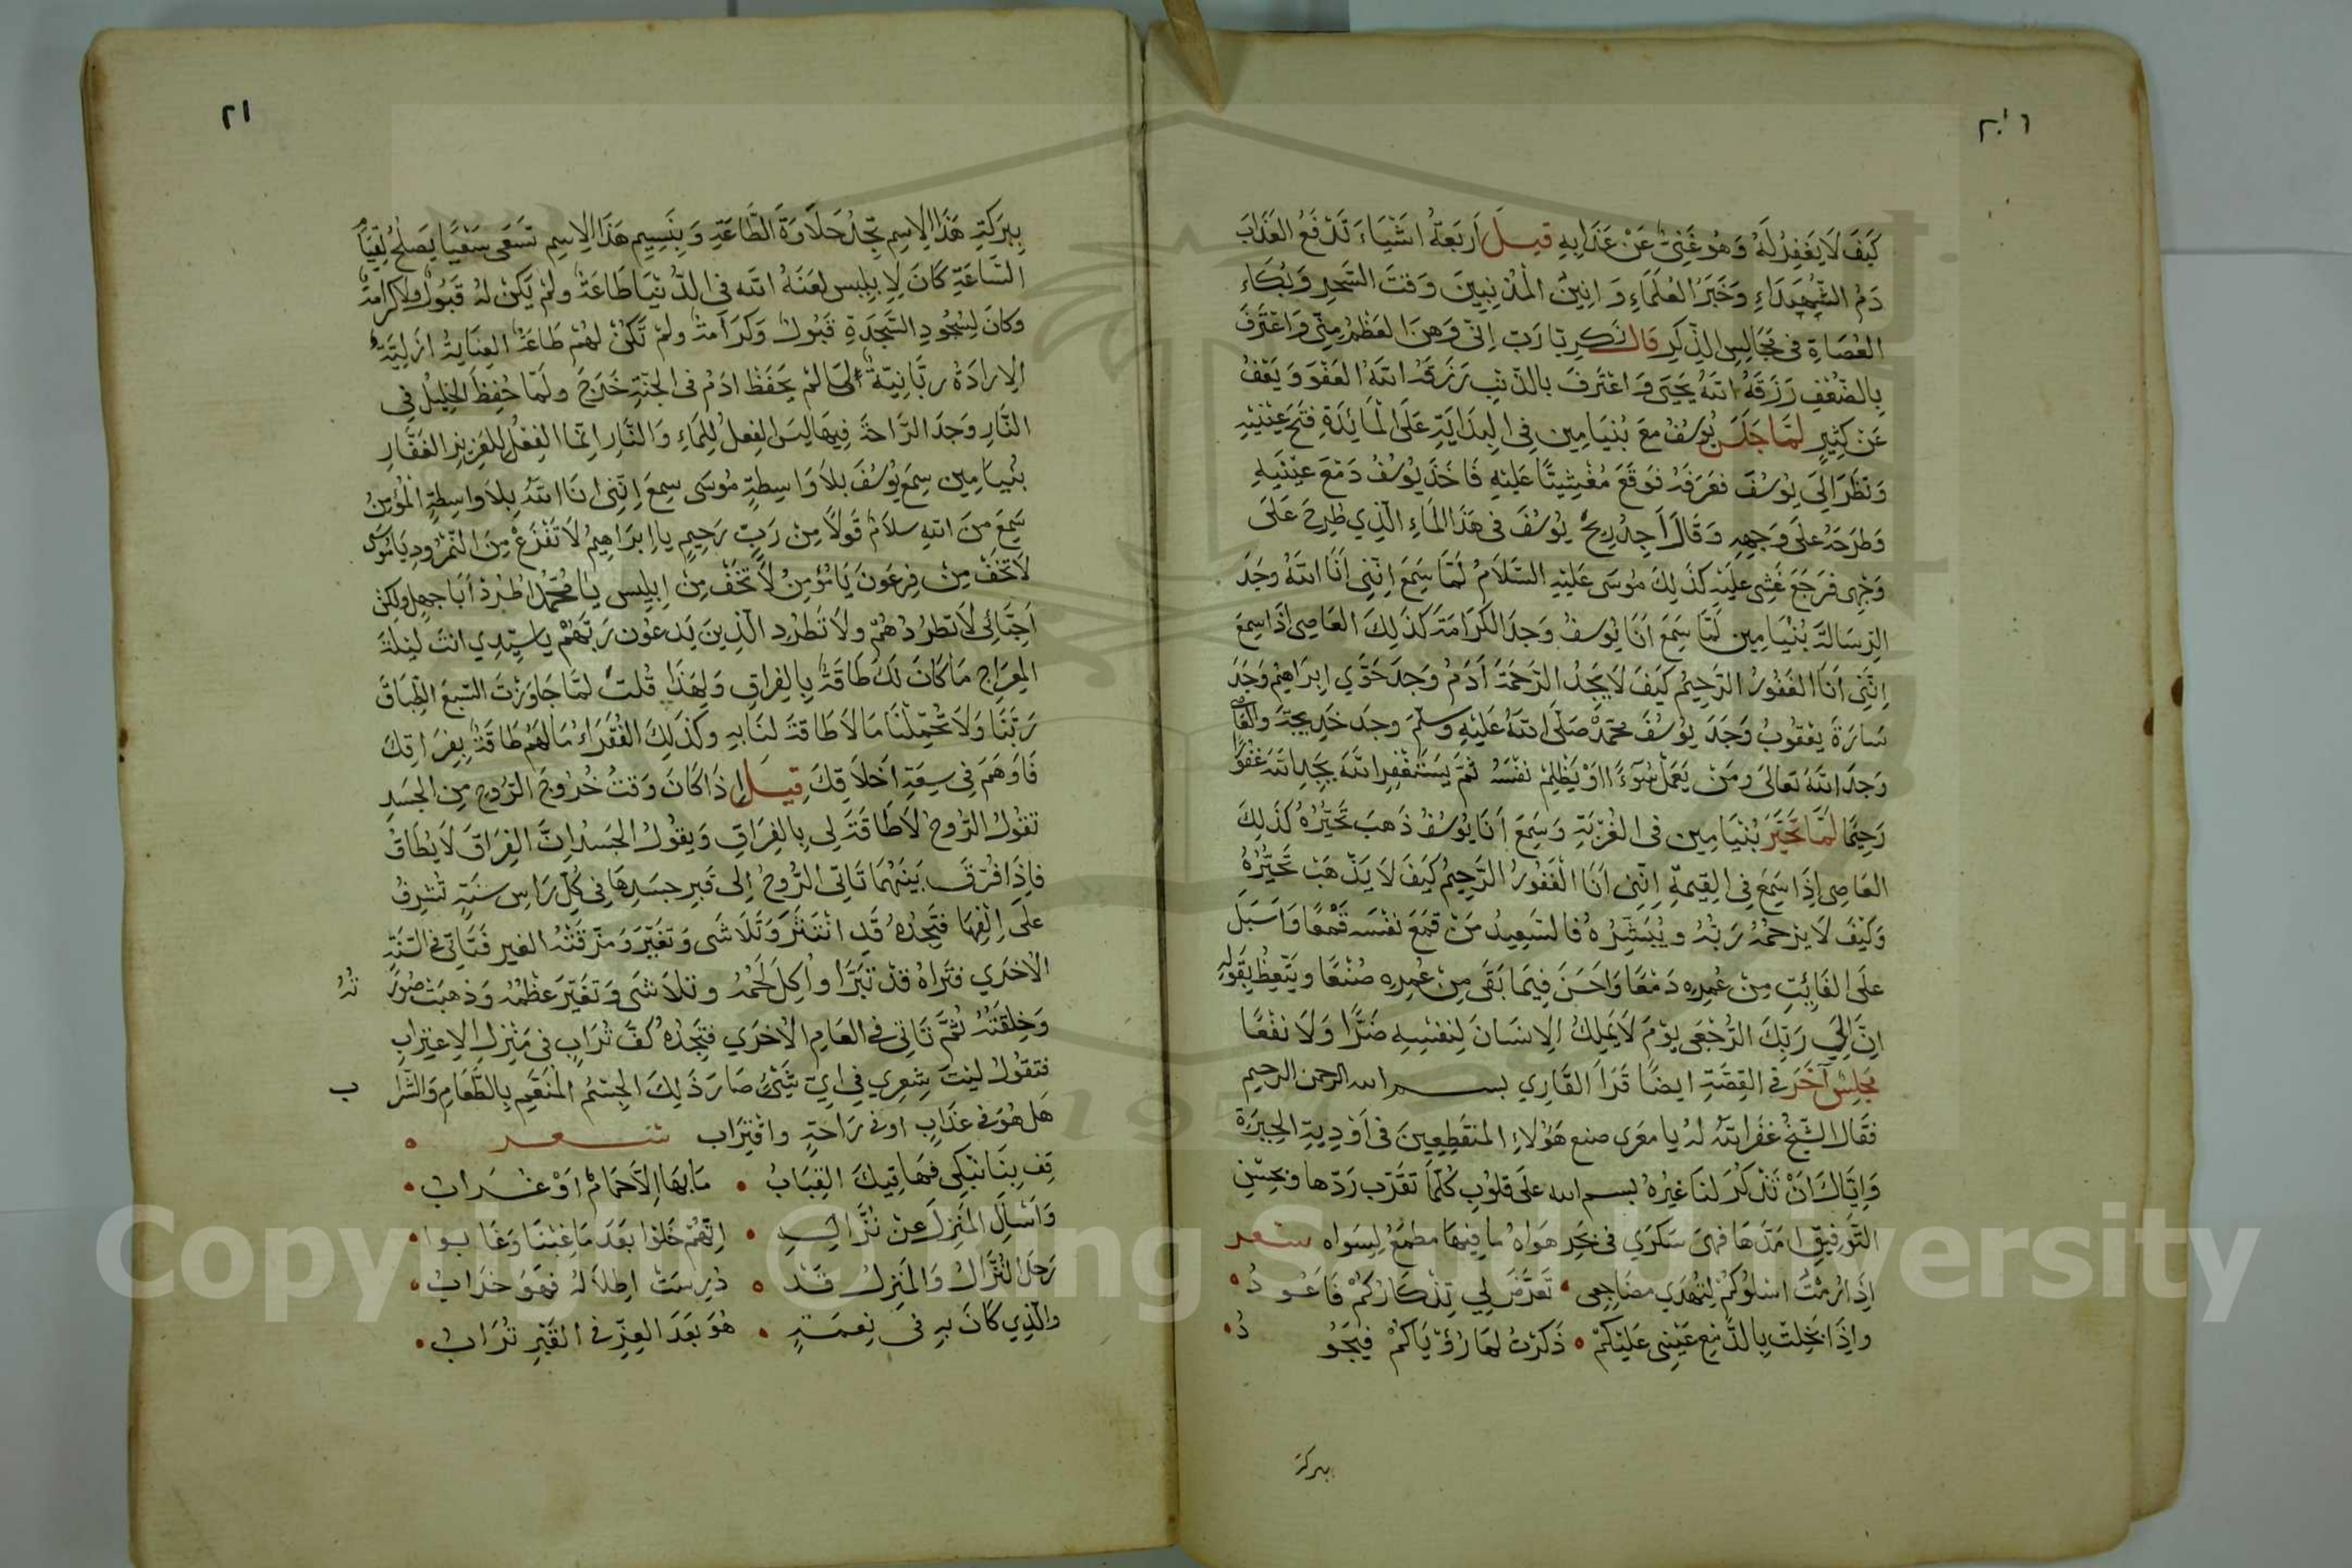 كَيْفَ لَا يَغْفِرُ لَهُ وَهُوَ غَنِيٌّ عَنْ عَذَابِهِ قيل أَرْبَعَةُ اشْيَاءَ تَدْفَعُ العَذَابَ
دَمُ الشُّهَدَاءِ وَخَبَرُ العُلَمَاءِ وَانِينُ المُذْنِبِينَ وَقْتَ السَّحَرِ وَبُكَاءِ
العُصَاةِ فى مَجَالِسِ الذِّكْرِ قال زَكَرِيَّا رَبِّ اِنِّى وَهَنَ العَظْمُ مِنِّى وَاعْتَرَفَ
بِالضُّعْفِ رَزَقَهُ اللَّهُ يَحْيَى وَاعْتَرَفَ بالذَّنْبِ رَزَقَهُ اللَّهُ العَفْوَ وَيَعْفُ
عَنْ كَثِيرٍ لَمَّا جَلَسَ يُوسُفُ مَعَ بُنْيَامِين فِى البِدَايَةِ عَلَى الْمَائِدَةِ فَتَحَ عَيْنَيْهِ
وَنَظَرَ الَى يُوسُفَ فَعَرَفَهُ فَوَقَعَ مُغْشِيًّا عَلَيْهِ فَاخَذَ يُوسُفُ دَمْعَ عَيْنَيهِ
وَطَرَحَهُ عَلَى وَجْهِهِ وَقَالَ اَجِدُ رِيحَ يُوسُفَ فى هَذَا المَاءِ الَّذِي طُرِحَ عَلَى
وَجْهِى فَرَجَعَ غُشِى عَلَيْهِ كَذَلِكَ مُوسَى عَلَيْهِ السَّلَامُ لَمَّا سَمِعَ اِنَّنِى اَنَا اللَّهُ وَجَدَ
الرِّسَالَةَ بُنْيَامِين لَمَّا سَمِعَ اَنَا يُوسُفُ وَجَدَ الكَرَامَةَ كَذَلِكَ العَاصِى اذَا سَمِعَ
اِنَّنِى اَنَا الغَفُورُ الرَّحِيمُ كَيْفَ لَا يَجِدُ الرَّحْمَةَ اَدَمُ وَجَدَ حَوَّي اِبرَاهِيمُ وَجَدَ
سَارَةَ يَعْقُوبُ وَجَدَ يُوسُفَ مُحَمَّدْ صَلَّى اللَّهُ عَلَيْهِ وَسَلَّمَ وجد خَدِيجَةَ والعَاصِى
وَجَدَ اللَّهُ تَعَالَى وَمَنْ يَعْمَلْ سُوءًا اوْ يَظْلِمْ نَفْسَهُ ثُمَّ يَسْتَغْفِرِ اللَّهَ يَجِدِ اللَّهَ غَفُورًا
رَحِيمًا لَمَّا تَحَيَّرَ بُنْيَامِين فى الغُرْبَةِ وَسَمِعَ اَنَا يُوسُفُ ذَهَبَ تَحَيُّرُهُ كَذَلِكَ
العَاصِى اِذَا سَمِعَ فِى القِيمَةِ اِنَّنِى اَنَا الْغَفُورُ الرَّحِيمُ كَيْفَ لَا يَذْهَبْ تَحَيُّرُهُ
وَكَيْفَ لَا يَرْحَمُهُ رَبُّهُ وَيُبَشِّرُهُ فَالسَّعِيدُ مَنْ قَمَعَ نَفْسَهُ قَمْعًا وَاَسْبَلَ
علَى الفَائِتِ مِنْ عُمِرِهِ دَمْعًا وَاَحْسَنَ فِيمَا بَقَى مِنْ عُمِرِهِ صُنْعًا وَيَتَّعِظُ بِقَوْلِهِ
اِنَّ اِلَى رَبِّكَ الرُّجْعَى يَوْمَ لَا يَمْلِكُ الاِنسَانَ لِنَفْسِهِ ضَرًّا وَلَا نَفْعًا
مَجْلِسٌ آخَرَ فى القِصَّةِ ايضًا قَرَاَ القَارِي بسم الله الرحمن الرحيم
فَقَالَ الشَّيْخُ غَفَرَ اللَّهُ لَهُ يا مقرى صنع هَؤُلَاءِ المنقَطِعِينَ فى اَوْدِيةِ الحِيرَةِ
وَاِيَّاكَ اَنْ تَذْكُرَ لَنَا غَيْرُهُ بسم الله عَلَى قلُوبِ كُلَّمَا تَقَرَّبَ رَدّها وبحِسْنِ
التَّوفِيقِ امَدّهَا فَهِىَ سَكْرَي فى بَحْرِ هَوَاهُ مَا فِيهَا مطمعٌ لِسِوَاه شعر
اِذَا رُمْتُ اسْلُوكُمْ لِتَهْدَي مضَاجِعِى • تَعَرَّضَ لِي تِذْكَارُكُمْ فَاعُودُ
واِذَا بَخِلَتْ بِالدَّمْعِ عَيْنِى عَلَيْكُمْ • ذَكَرْتُ لهَا رُؤْيَاكُمْ فيَجُودُ
ببركة
٢١
بِبَرَكَةِ هَذَا الاِسِمِ تَجِدُ حَلَاوَةَ الطَّاعَةِ وَبِنَسِيمِ هَذَا الاِسِمِ تَسْعَى سَعْيًا يَصْلُحُ لِقِيَامِ
السَّاعَةِ كَانَ لِاِبْلِيس لَعَنَهُ اللَّه فى الدُّنْيَا طَاعَةٌ ولَمْ يَكُنْ لَهُ قَبُولٌ ولَا كَرَامَةٌ
وكَانَ لِسُجُودِ السَّجَدَةِ قَبُولٌ وَكَرَامَةٌ ولَمْ تَكُنْ لَهُمْ طَاعَةٌ العِنَايَةُ ازَلِيَّةٌ
الاِرادَةُ ربَّانِيَّةٌ لَمَّا لَمْ يحْفَظ ادَمُ فى الجَنَّةِ خَرَجَ ولَمَّا حُفِظَ الخَلِيلُ فِى
النَّارِ وَجَدَ الرَّاحَةَ فِيهَا لَيسَ الفِعلُ لِلمَاءِ وَالنَّارِ اِنَّمَا الفِعْلُ لِلعَزِيزِ الغَفَّارِ
بُنْيَامِين سِمَعَ يُوسُفَ بلَا وَاسِطَةٍ مُوسَى سمِعَ اِنَّنِى انَا اللَّهُ بِلَا وَاسِطَةٍ الْمُؤمِنُ
سَمِعَ مِنَ اللهِ سلَامٌ قَولًا مِنْ رَبٍّ رَحِيمٍ يا اِبرَاهِيمُ لَا تَفْزَعْ مِنَ النَّمْرُودِ يَا مُوسَى
لَا تَخَفْ مِنْ فِرعَونَ يَا مُؤْمِنُ لَا تَخَفْ مِنْ اِبلِيس يَا مُحَمَّدُ اطْرُدْ اَبَا جهِلٍ ولكِنْ
اَحِبَّائِى لَا تَطرُدْهُمْ ولَا تَطْرُدِ الَّذِينَ يَدعُونَ رَبَّهُمْ يا سَيِّدِي انتَ لَيْلَةَ
المِعرَاجِ مَا كَانَ لَكَ طَاقَةٌ بِالفِراقِ وَلِهَذَا قُلتَ لمَّا جَاوَزْتَ السَّبعَ الطِّبَاقَ
رَبَّنَا وَلَا تُحَمِّلْنَا مَا لَا طَاقَةَ لَنَا بِهِ وكذَلِكَ الفُقَرَاءُ مَا لهُمْ طَاقَةٌ بِفِرَاقِكَ
فَاوهَمَ فِى سِعَةِ اَخْلَاقِكَ قِيلَ اِذَا كَانَ وَقتُ خُرُوجِ الرُّوحِ مِنَ الجَسَدِ
تَقُولُ الرُّوحُ لَا طَاقَةَ لِى بِالفِرَاقِ وَيقُولُ الجَسدُ اِنَّ الفِرَاقَ لَا يُطَاقُ
فاِذَا فُرِّقَ بَينَهُمَا تَاتِى الرُّوحُ اِلى قبرِ جسَدِهَا فى كُلِّ رَاسِ سَنَةٍ تُشرِفُ
علَى اِلْفِهَا فتَجِدُهُ قَدِ انْتَثَرَ وَتَلَاشَى وَتَغَيَّرَ وَمزّقَتْهُ الغير فَتَاتِى فى السَّنَةِ
الاُخرَي فتَرَاهُ قَدْ تبَرَّا واُكِلَ لَحْمُهُ وتلَاشَى وَتَغَيَّرَ عَظْمُهُ وَذَهبَتْ صُورَتُهُ
وَخِلقَتُهُ ثُمَّ تَاتِى فى العَامِ الاُخرَي فتَجِدُهُ كَفَّ تُرَابٍ فى مَنْزِلِ الاِغتِرابِ
فتقُولُ ليْتَ شِعرِي فِى اَيِّ شَيْئٍ صَارَ ذَلِكَ الجِسْمُ المُنَعَّمِ بِالطَّعَامِ وَالشَّرَابِ
هَل هُوَ فى عذَابٍ او فى رَاحَةٍ واقْتِرَاب شعر
قِف بِنَا نَبْكِى فَهَاتِيكَ القِبَابُ • مَا بهَا اِلَّا حَمَامٌ اَوْ غُرَابُ •
وَاسْاَلِ المَنزِلَ عِنْ نُزَّالِهِ • اِنَّهُمْ خَلَوْا بَعْدَ مَا غِبْنَا وَغَابوا •
رَحَلَ النُّزَّالُ وَالمَنزِلُ قَدْ • دُرِسَتْ اطلَالُهُ فهُوَ خَرَابُ •
والَّذِي كَانَ بهِ فى نِعمَةٍ • هُوَ بَعدَ العِزِّ فى القَبْرِ تُرَابُ •
Copyright © King Saud University